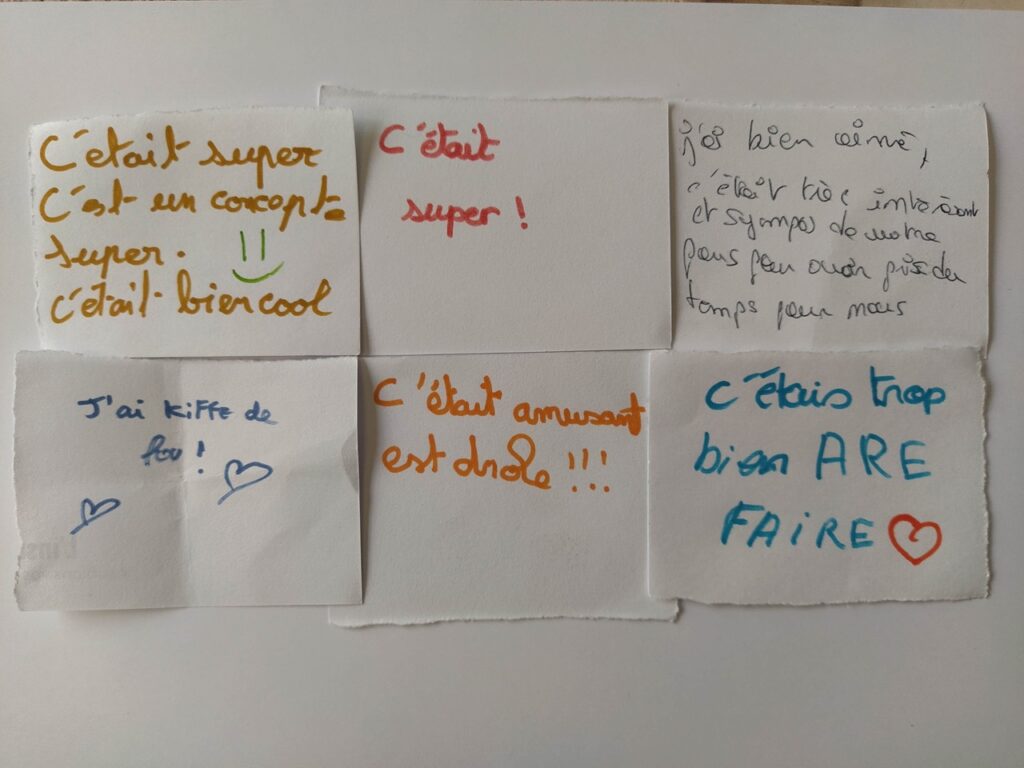 C'était super
C'est un concepte
super.
c'était bien cool
C'était
super !
j'ai bien aimé,
c'était très intéréssant
et sympas de votre
pars pour avoir pris du
temps pour nous
J'ai kiffe de
fou !
C'était amusant
est drole !!!
C'étais trop
bien ARE
FAiRE